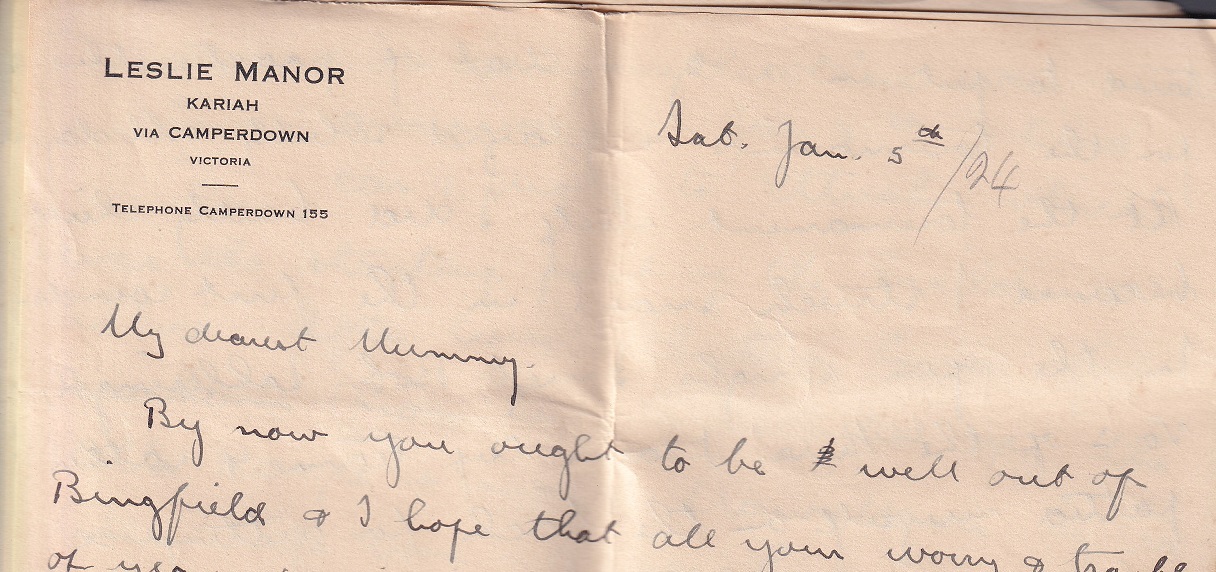 LESLIE MANOR
KARIAH
VIA CAMPERDOWN
VICTORIA
TELEPHONE CAMPERDOWN 155
Sat. Jan. 5th/24
My dearest Mummy.
By now you ought to be well out of
Bingfield & I hope that all your worry &
of